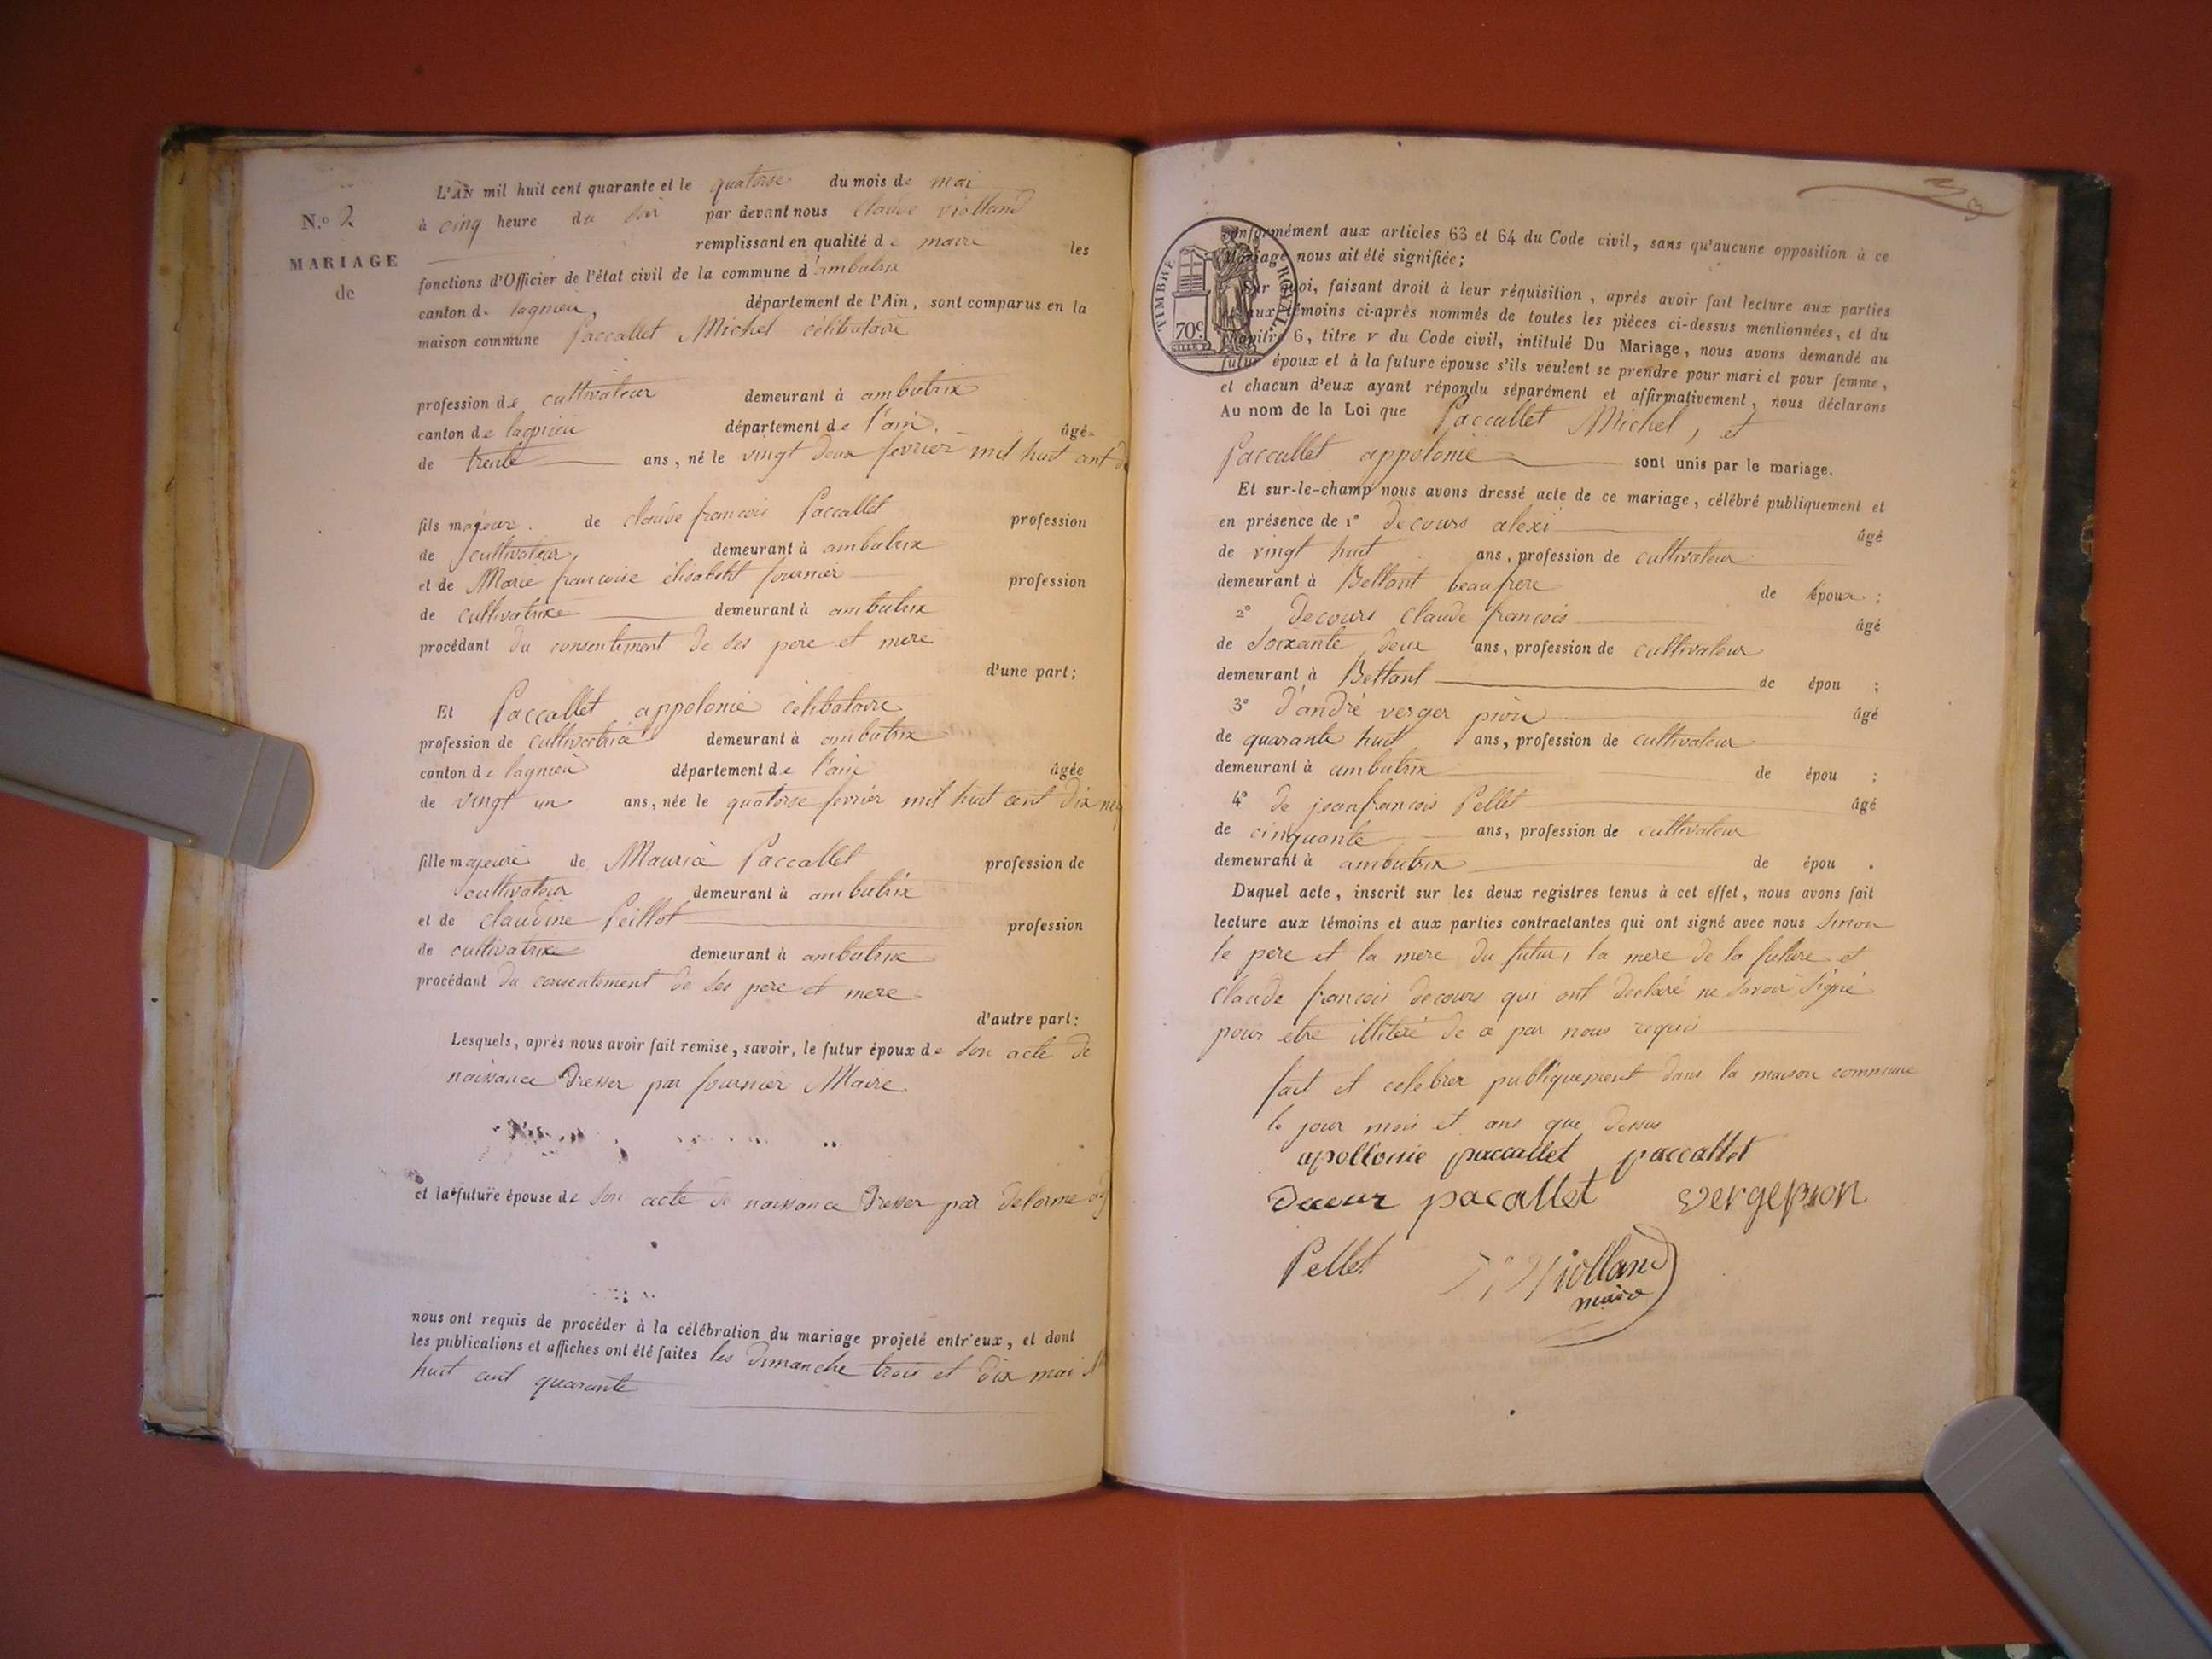 L'AN mil huit cent quarante et le quatorse du mois de mai
N.o 2
à cinq heure du soir par devant nous Claude violland
remplissant en qualité de maire les
MARIAGE
de
fonctions d'Officier de l'état civil de la commune d'ambutrix
canton de lagnieu, département de l'Ain, sont comparus en la
maison commune Paccallet Michel célibataire
profession de cultivateur demeurant à ambutrix
canton de lagnieu département de l'ain, âgé
de trente ans, né le vingt deux fevrier mil huit cent
fils majeur de claude francois Paccallet profession
de cultivateur, demeurant à ambutrix
et de Marie francoise élisabeht fournier profession
de cultivatrixe demeurant à ambutrix
procédant du consentement de ses pere et mere
d'une part;
Et Paccallet appolonie célibataire
profession de cultivatrice demeurant à ambutrix
canton de lagnieu département de l'ain âgée
de vingt un ans, née le quatorse fevrier mil huit cent dix
fille majeure de Maurice Paccallet profession de
cultivateur demeurant à ambutrix
et de claudine Peillot profession
de cultivatrixe demeurant à ambutrix
procédant du consentement de ses pere et mere
d'autre part:
Lesquels, après nous avoir fait remise, savoir, le futur époux de son acte de
naissance Dresser par fournier Maire
et la future épouse de son acte de naissance Dresser par delorme
nous ont requis de procéder à la célébration du mariage projeté entr'eux, et dont
les publications et affiches ont été faites les dimanche trois et dix mai
huit cent quarante
TIMBRE ROYAL
70c
conformément aux articles 63 et 64 du Code civil, sans qu'aucune opposition à ce
mariage nous ait été signifiée;
Sur quoi, faisant droit à leur réquisition, après avoir fait lecture aux parties
et aux témoins ci-après nommés de toutes les pièces ci-dessus mentionnées, et du
chapitre 6, titre v du Code civil, intitulé Du Mariage, nous avons demandé au
futur époux et à la future épouse s'ils veulent se prendre pour mari et pour femme,
et chacun d'eux ayant répondu séparément et affirmativement, nous déclarons
Au nom de la Loi que Paccallet Michel, et
Paccallet appolonie sont unis par le mariage.
Et sur-le-champ nous avons dressé acte de ce mariage, célébré publiquement et
en présence de 1o decours alexi âgé
de vingt huit ans, profession de cultivateur
demeurant à Bettant beaufrere de époux;
2o decours claude francois âgé
de soixante deux ans, profession de cultivateur
demeurant à Bettant de épou ;
3o d'andré verger pion âgé
de quarante huit ans, profession de cultivateur
demeurant à ambutrix de épou ;
4o de jeanfrancois Pellet âgé
de cinquante ans, profession de cultivateur
demeurant à ambutrix de épou .
Duquel acte, inscrit sur les deux registres tenus à cet effet, nous avons fait
lecture aux témoins et aux parties contractantes qui ont signé avec nous sinon
le pere et la mere du futur, la mere de la future et
claude francois decours qui ont declaré ne savoir signé
pour etre illitéré de ce par nous requis
fait et celebrer publiquement dans la maison commune
le jour mois et ans que dessus
apollonie paccallet paccallet
Decour pacallet vergepion
Pellet Violland
maire